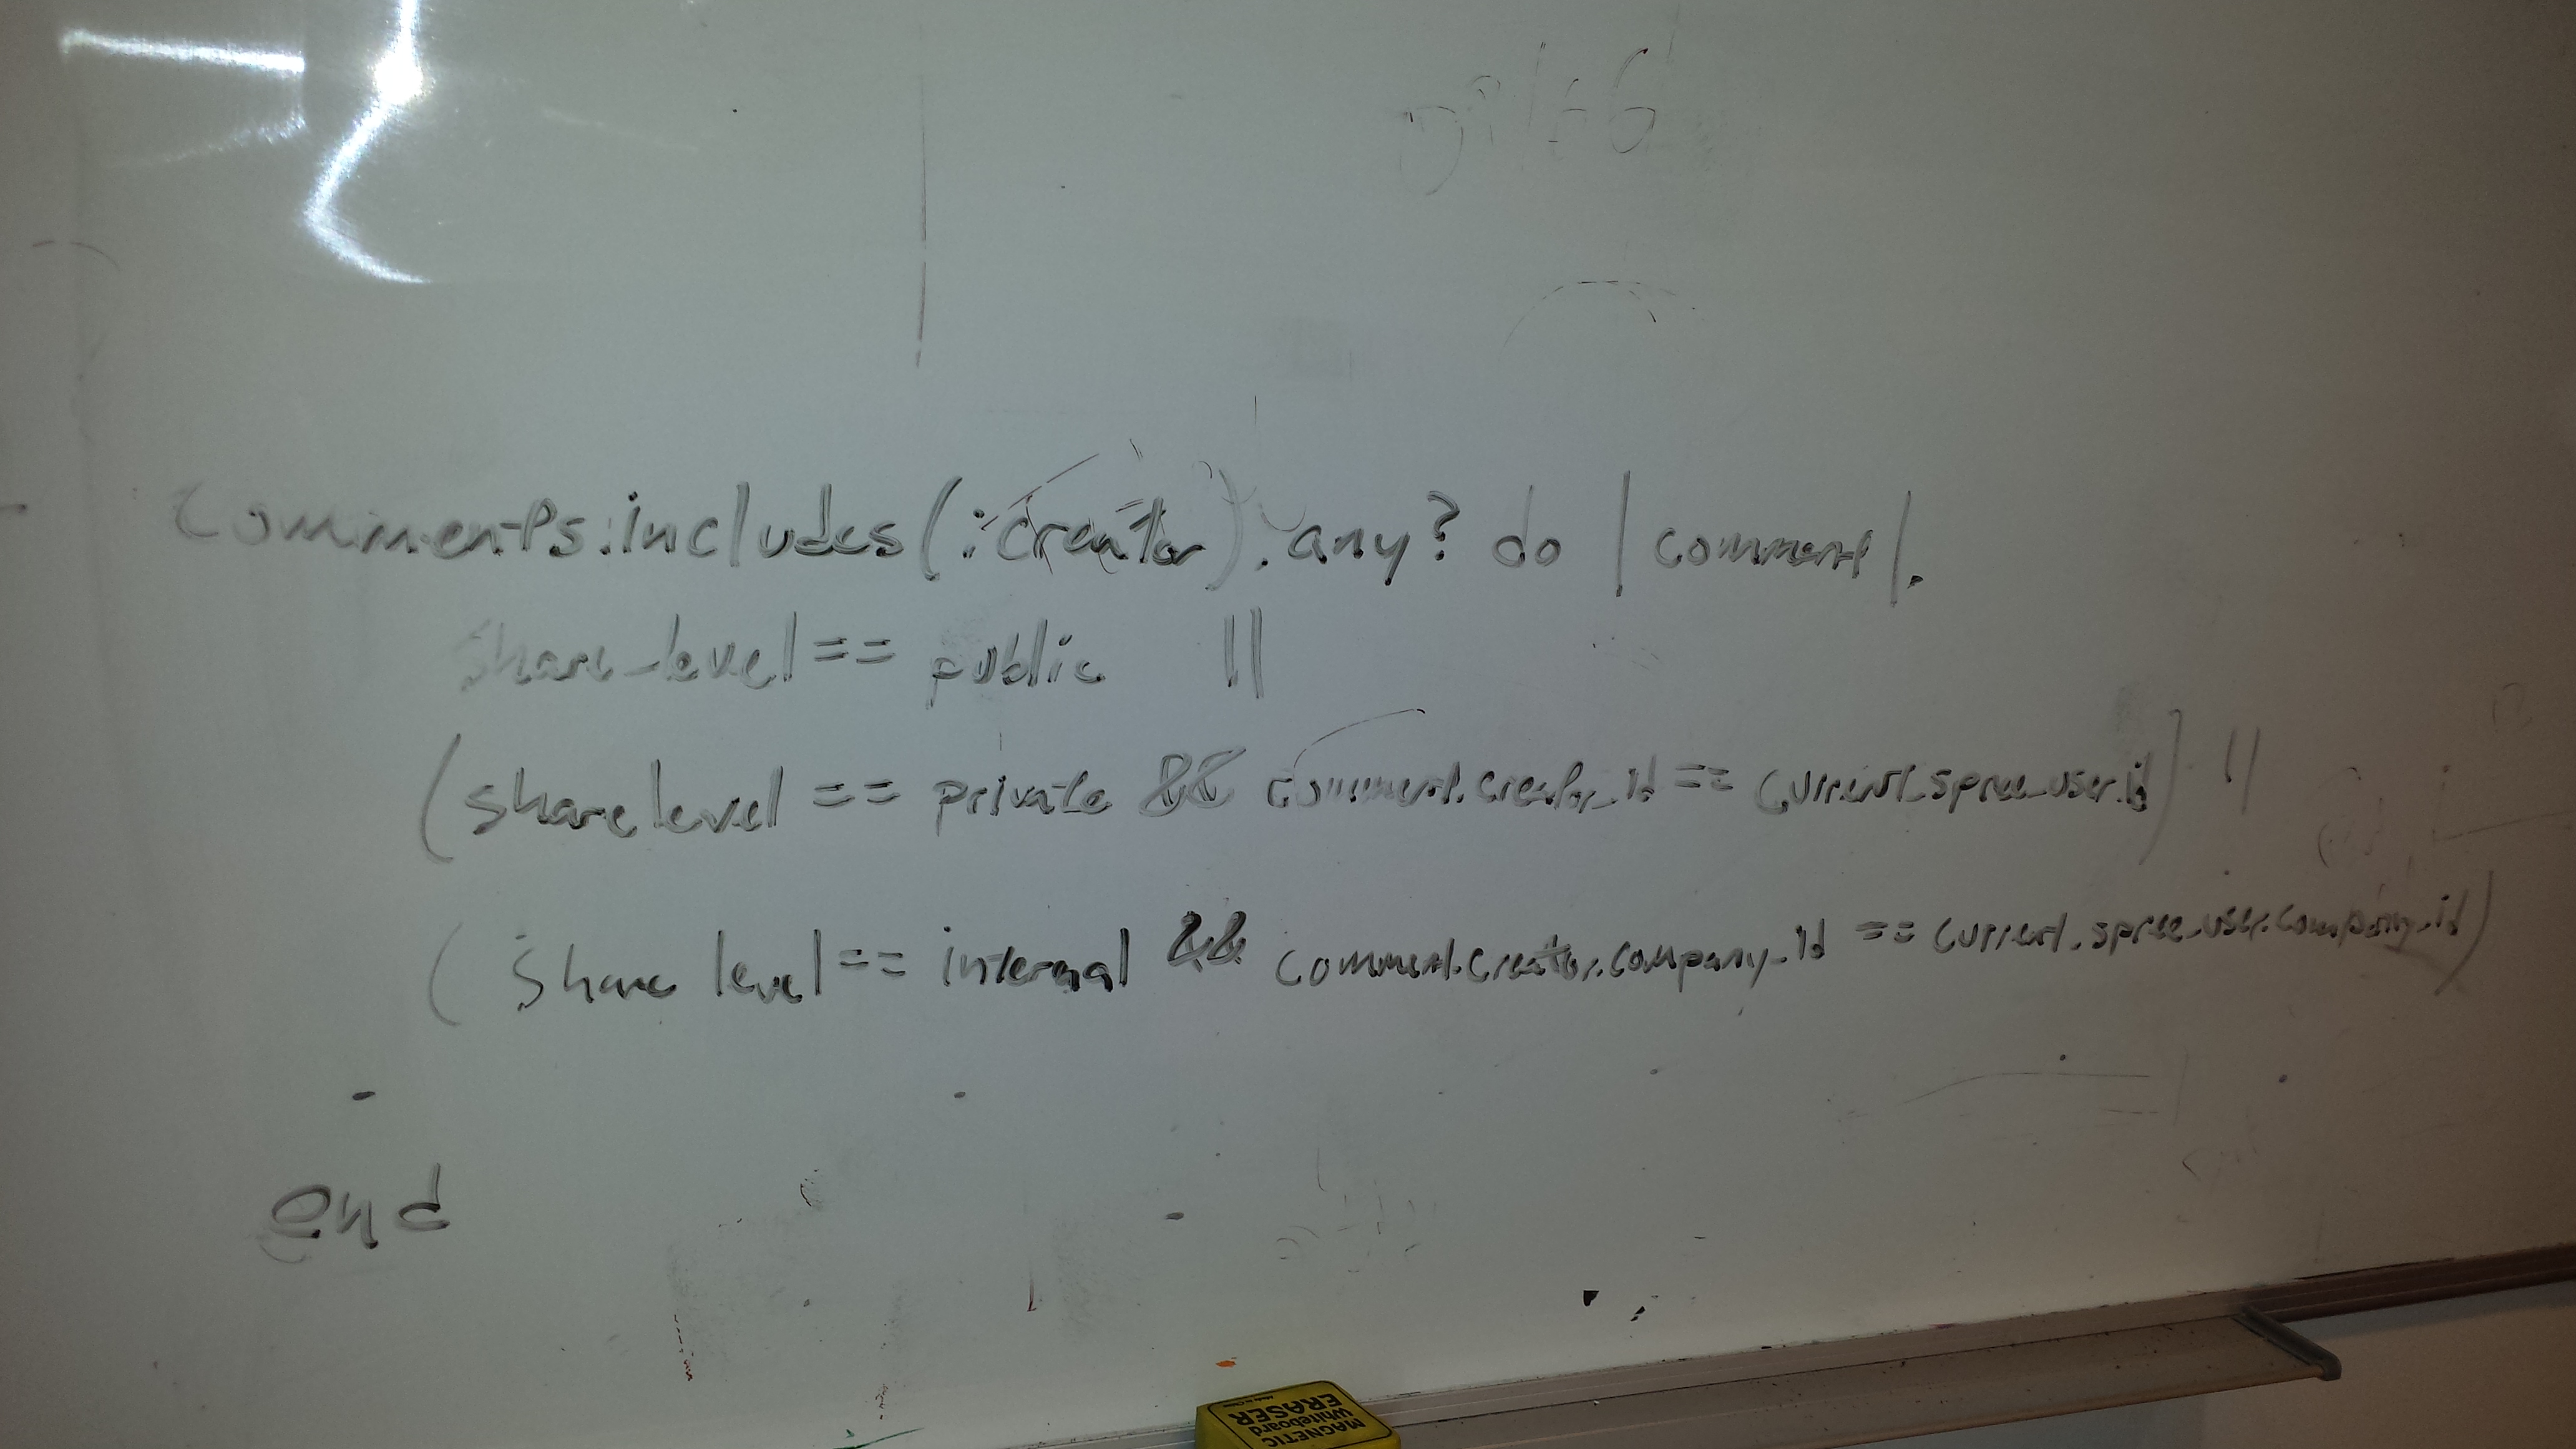 comments.includes(:creator).any? do |comment|.
share_level == public ||
(share level == private && comment.creator_id == current_spree_user.id) ||
(share level == internal && comment.creator.company_id == current_spree_user.company_id)
end
MAGNETIC
Whiteboard
ERASER
Made in China